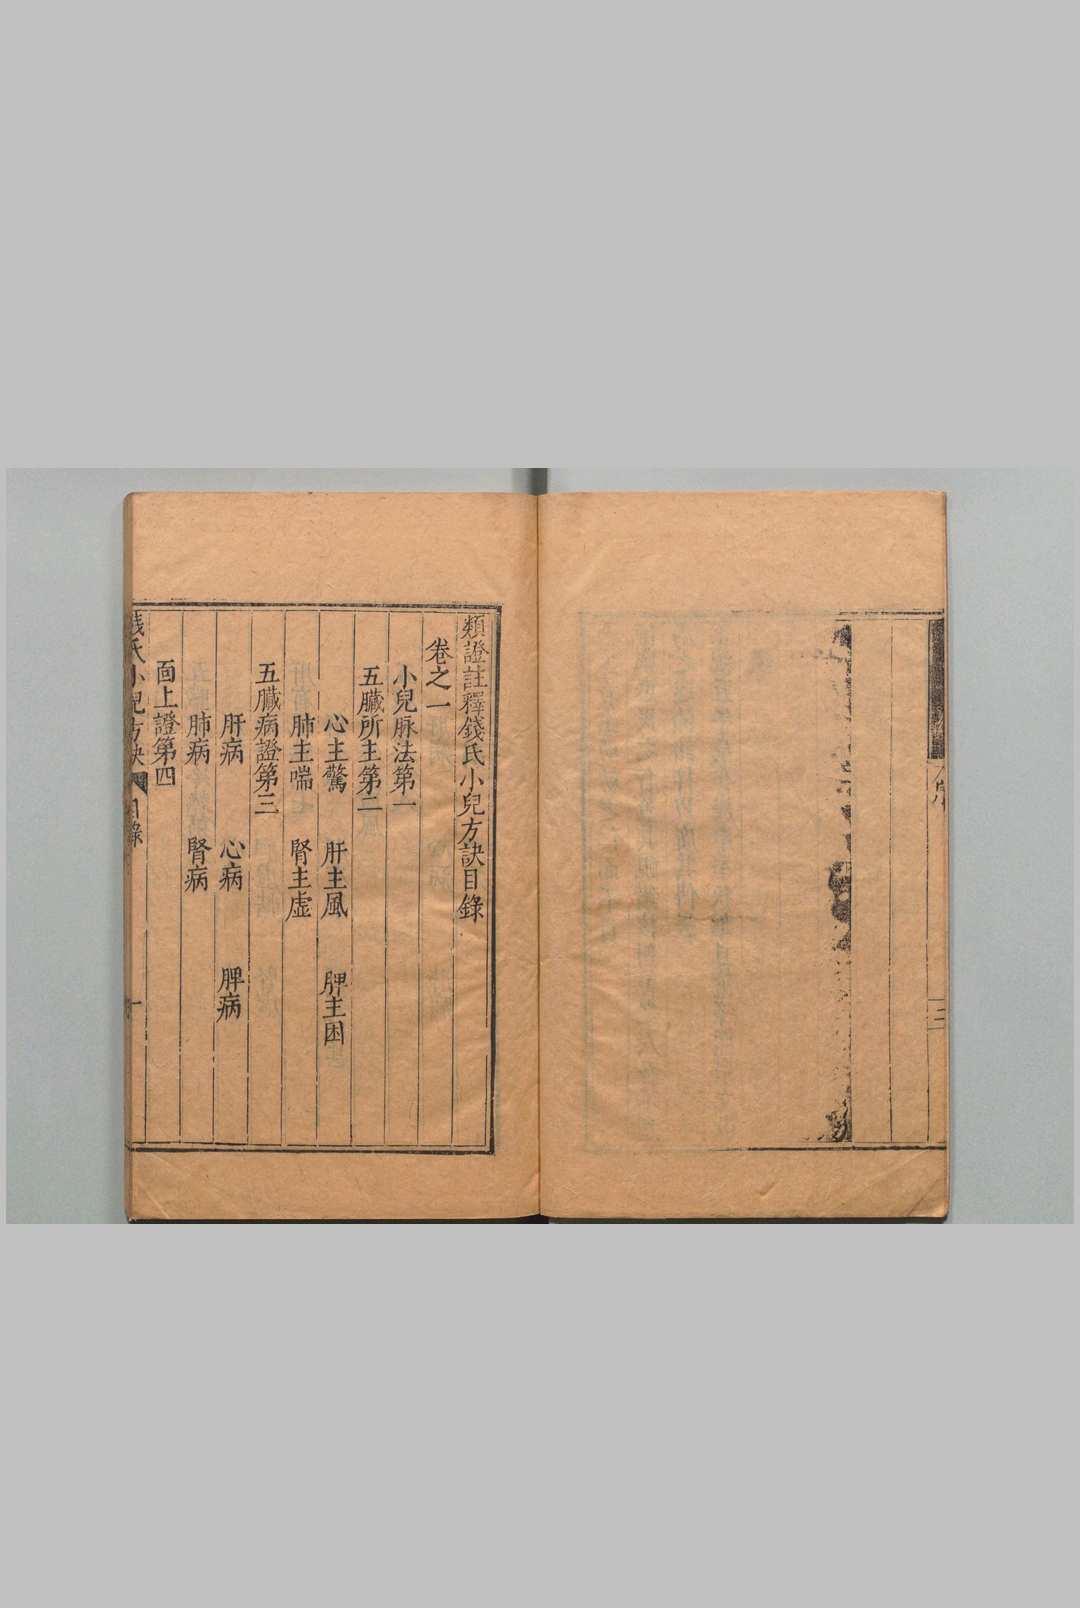 序
二
類證註釋錢氏小兒方訣目錄
卷之一
小兒脉法第一
五臟所主第二
心主驚 肝主風 脾主困
肺主喘 腎主虛
五臟病證第三
肝病 心病 脾病
肺病 腎病
面上證第四
錢氏小兒方訣 目錄 一